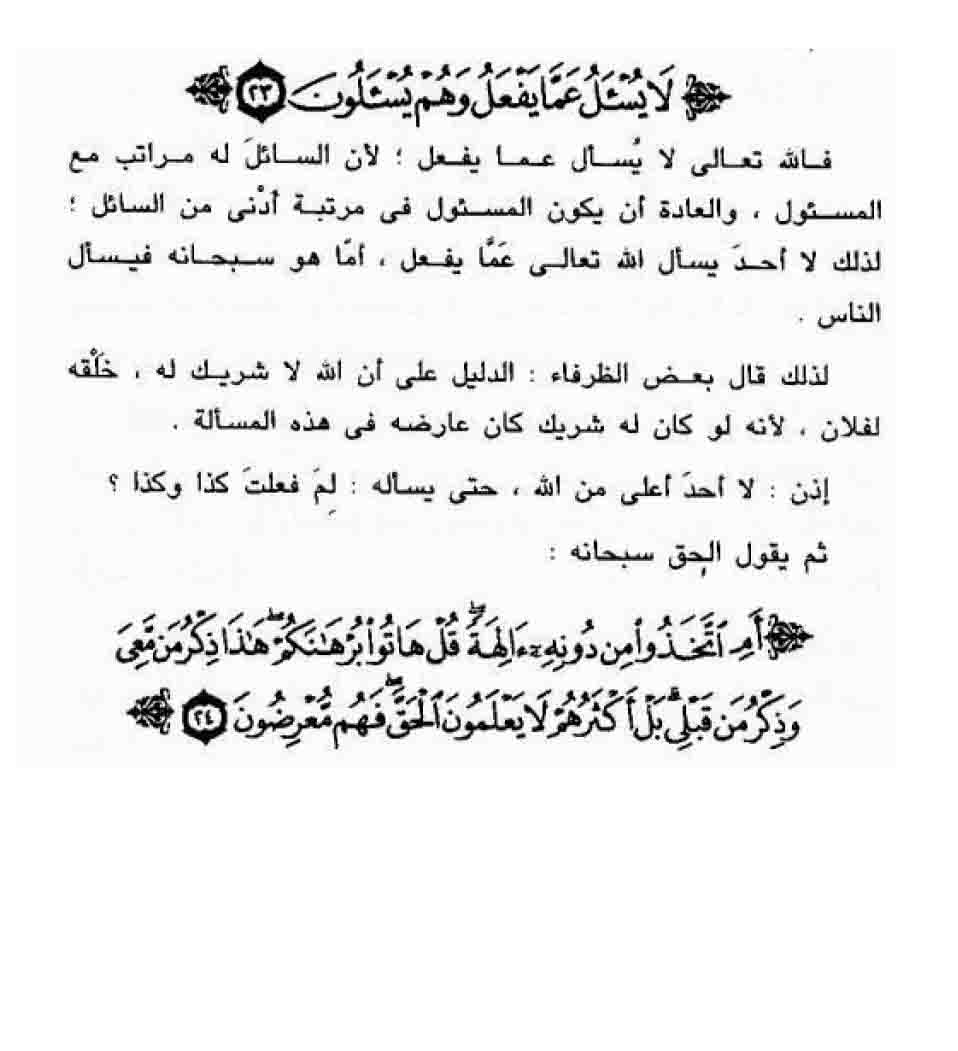 ﴿ لَا يُسْـَٔلُ عَمَّا يَفْعَلُ وَهُمْ يُسْـَٔلُونَ ٢٣ ﴾
فالله تعالى لا يُسأل عما يفعل ؛ لأن السائلَ له مراتب مع
المسئول ، والعادة أن يكون المسئول فى مرتبة أدْنى من السائل ؛
لذلك لا أحدَ يسأل الله تعالى عَمَّا يفعل ، أمّا هو سبحانه فيسأل
الناس .
لذلك قال بعض الظرفاء : الدليل على أن الله لا شريك له ، خَلْقه
لفلان ، لأنه لو كان له شريك كان عارضه فى هذه المسألة .
إذن : لا أحدَ أعلى من الله ، حتى يسأله : لِمَ فعلتَ كذا وكذا ؟
ثم يقول الحق سبحانه :
﴿ أَمِ ٱتَّخَذُوا۟ مِن دُونِهِۦٓ ءَالِهَةً ۖ قُلْ هَاتُوا۟ بُرْهَـٰنَكُمْ ۖ هَـٰذَا ذِكْرُ مَن مَّعِىَ
وَذِكْرُ مَن قَبْلِى ۗ بَلْ أَكْثَرُهُمْ لَا يَعْلَمُونَ ٱلْحَقَّ ۖ فَهُم مُّعْرِضُونَ ٢٤ ﴾